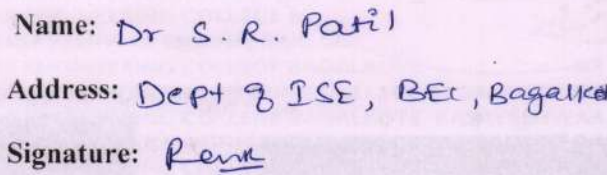 Name: Dr S. R. Patil
Address: Dept of ISE, BEC, Bagalkot
Signature: